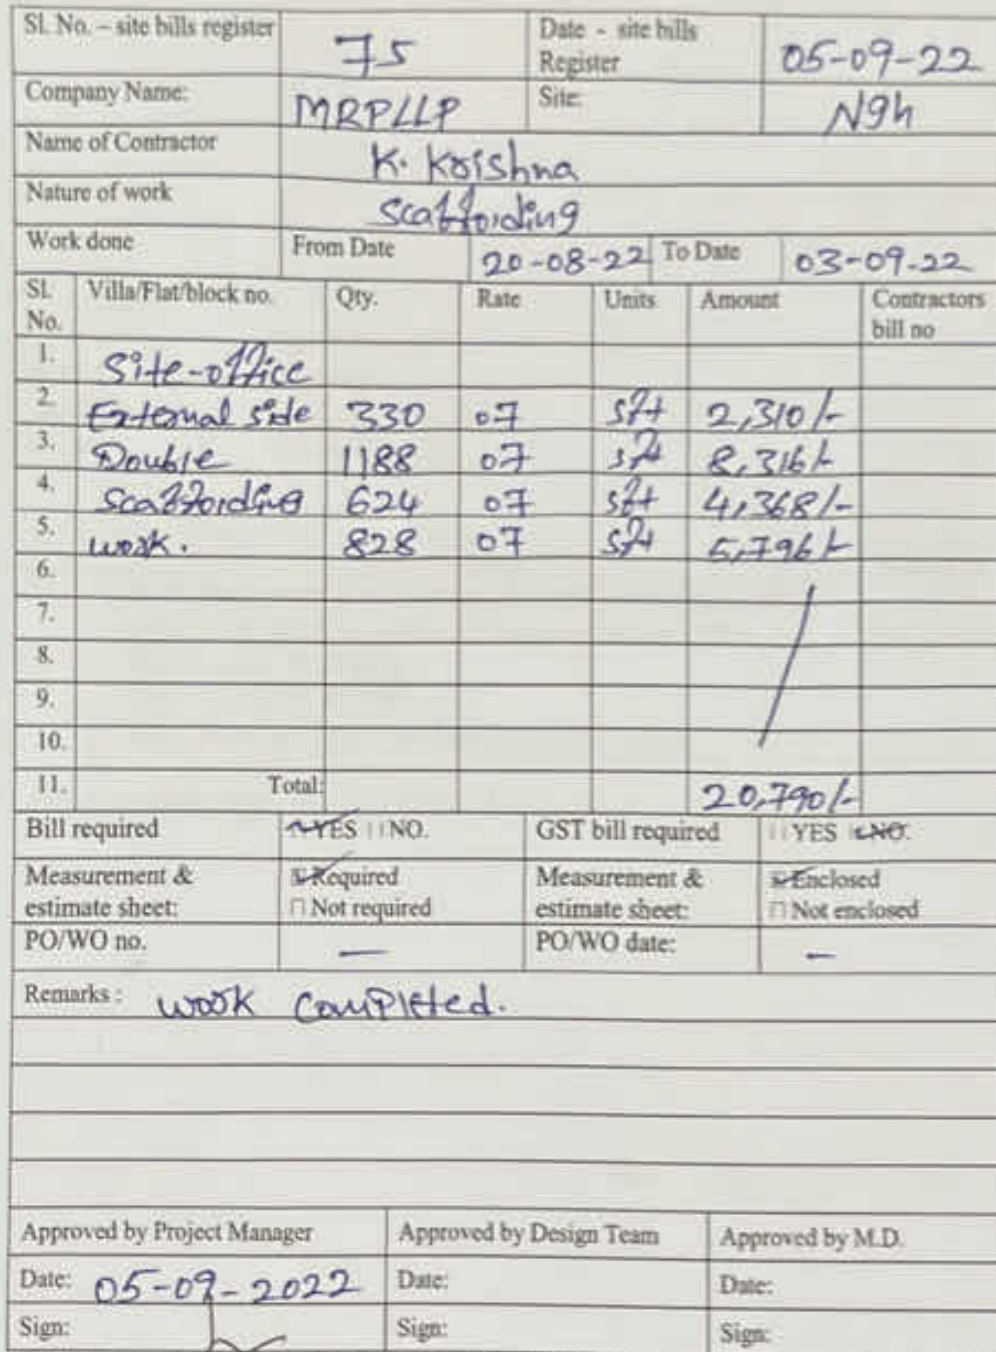 Sl. No. – site bills register 75 Date - site bills Register 05-09-22
Company Name: MRPLLP Site: NGh
Name of Contractor K. Krishna
Nature of work Scaffolding
Work done From Date 20-08-22 To Date 03-09-22
Sl. No. Villa/Flat/block no. Qty. Rate Units Amount Contractors bill no
1. Site-office
2. External side 330 07 sft 2,310/-
3. Double 1188 07 sft 8,316/-
4. Scaffolding 624 07 sft 4,368/-
5. work. 828 07 sft 5,796/-
6.
7.
8.
9.
10.
11. Total: 20,790/-
Bill required YES NO. GST bill required YES NO.
Measurement & estimate sheet: Required Measurement & estimate sheet: Enclosed
Not required Not enclosed
PO/WO no. — PO/WO date: —
Remarks : work completed.
Approved by Project Manager Approved by Design Team Approved by M.D.
Date: 05-09-2022 Date: Date:
Sign: Sign: Sign: